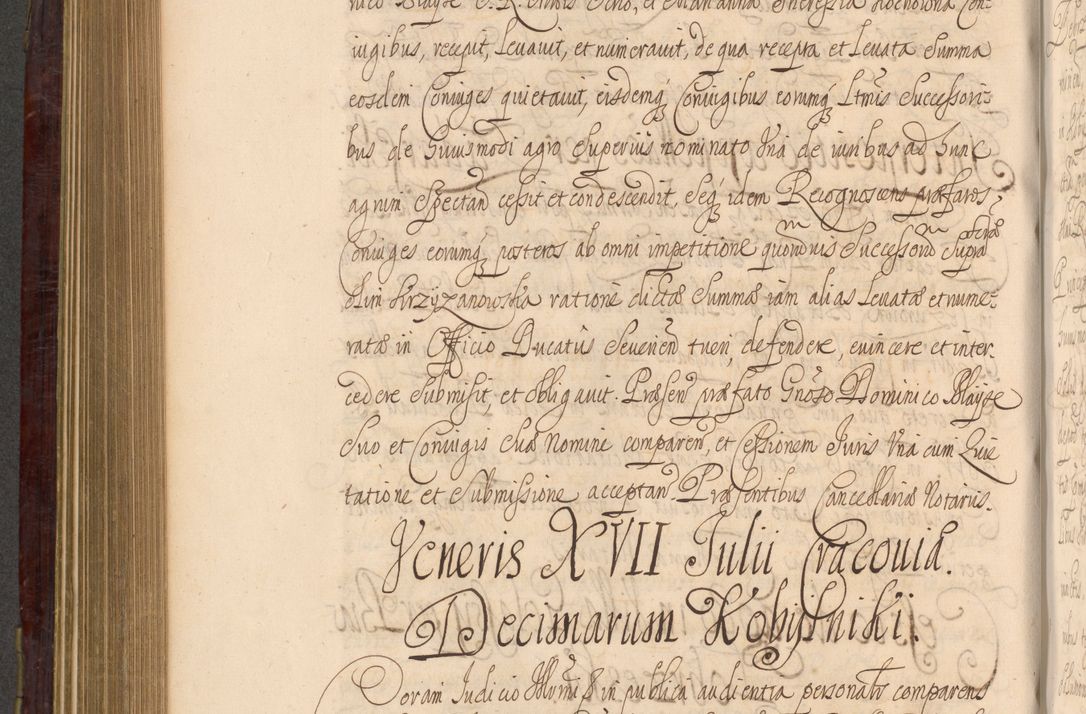 nico Blayse S. R. Mttis Scho, et Marianna Theressia Hocholona Con-
iugibus, recepit, Levavit, et numeravit, de qua recepta et Levata Summa
eosdem Coniuges quietavit, eisdemq Coniugibus eorumq Ltmis Successori-
bus de huiusmodi agro Superius nominato Una de iuribus ad hunc
agrum Spectan cessit et condescendit. Seq idem Recognoscens præfatos
Coniuges eorumq posteros ab omni impetitione quorumvis Successorum Supra
Olim Krzyzanowska ratione dictæ Summæ iam alias Levatæ et nume-
ratæ in Officio Ducatus Severien tueri, defendere, evincere et inter-
cedere Submisit et Obligavit. Præsen præfato Gnoso Dominico Blayse
Suo et Coniugis Suæ Nomine comparen, et Cessionem Iuris Una cum Quie
tatione et Submissione acceptan. Præsentibus Cancellariæ Notariis.
Veneris XVII Iulii Cracoviæ.
Decimarum Kobylniki.
Coram Iudicio Illmi in publica audientia personalr comparens